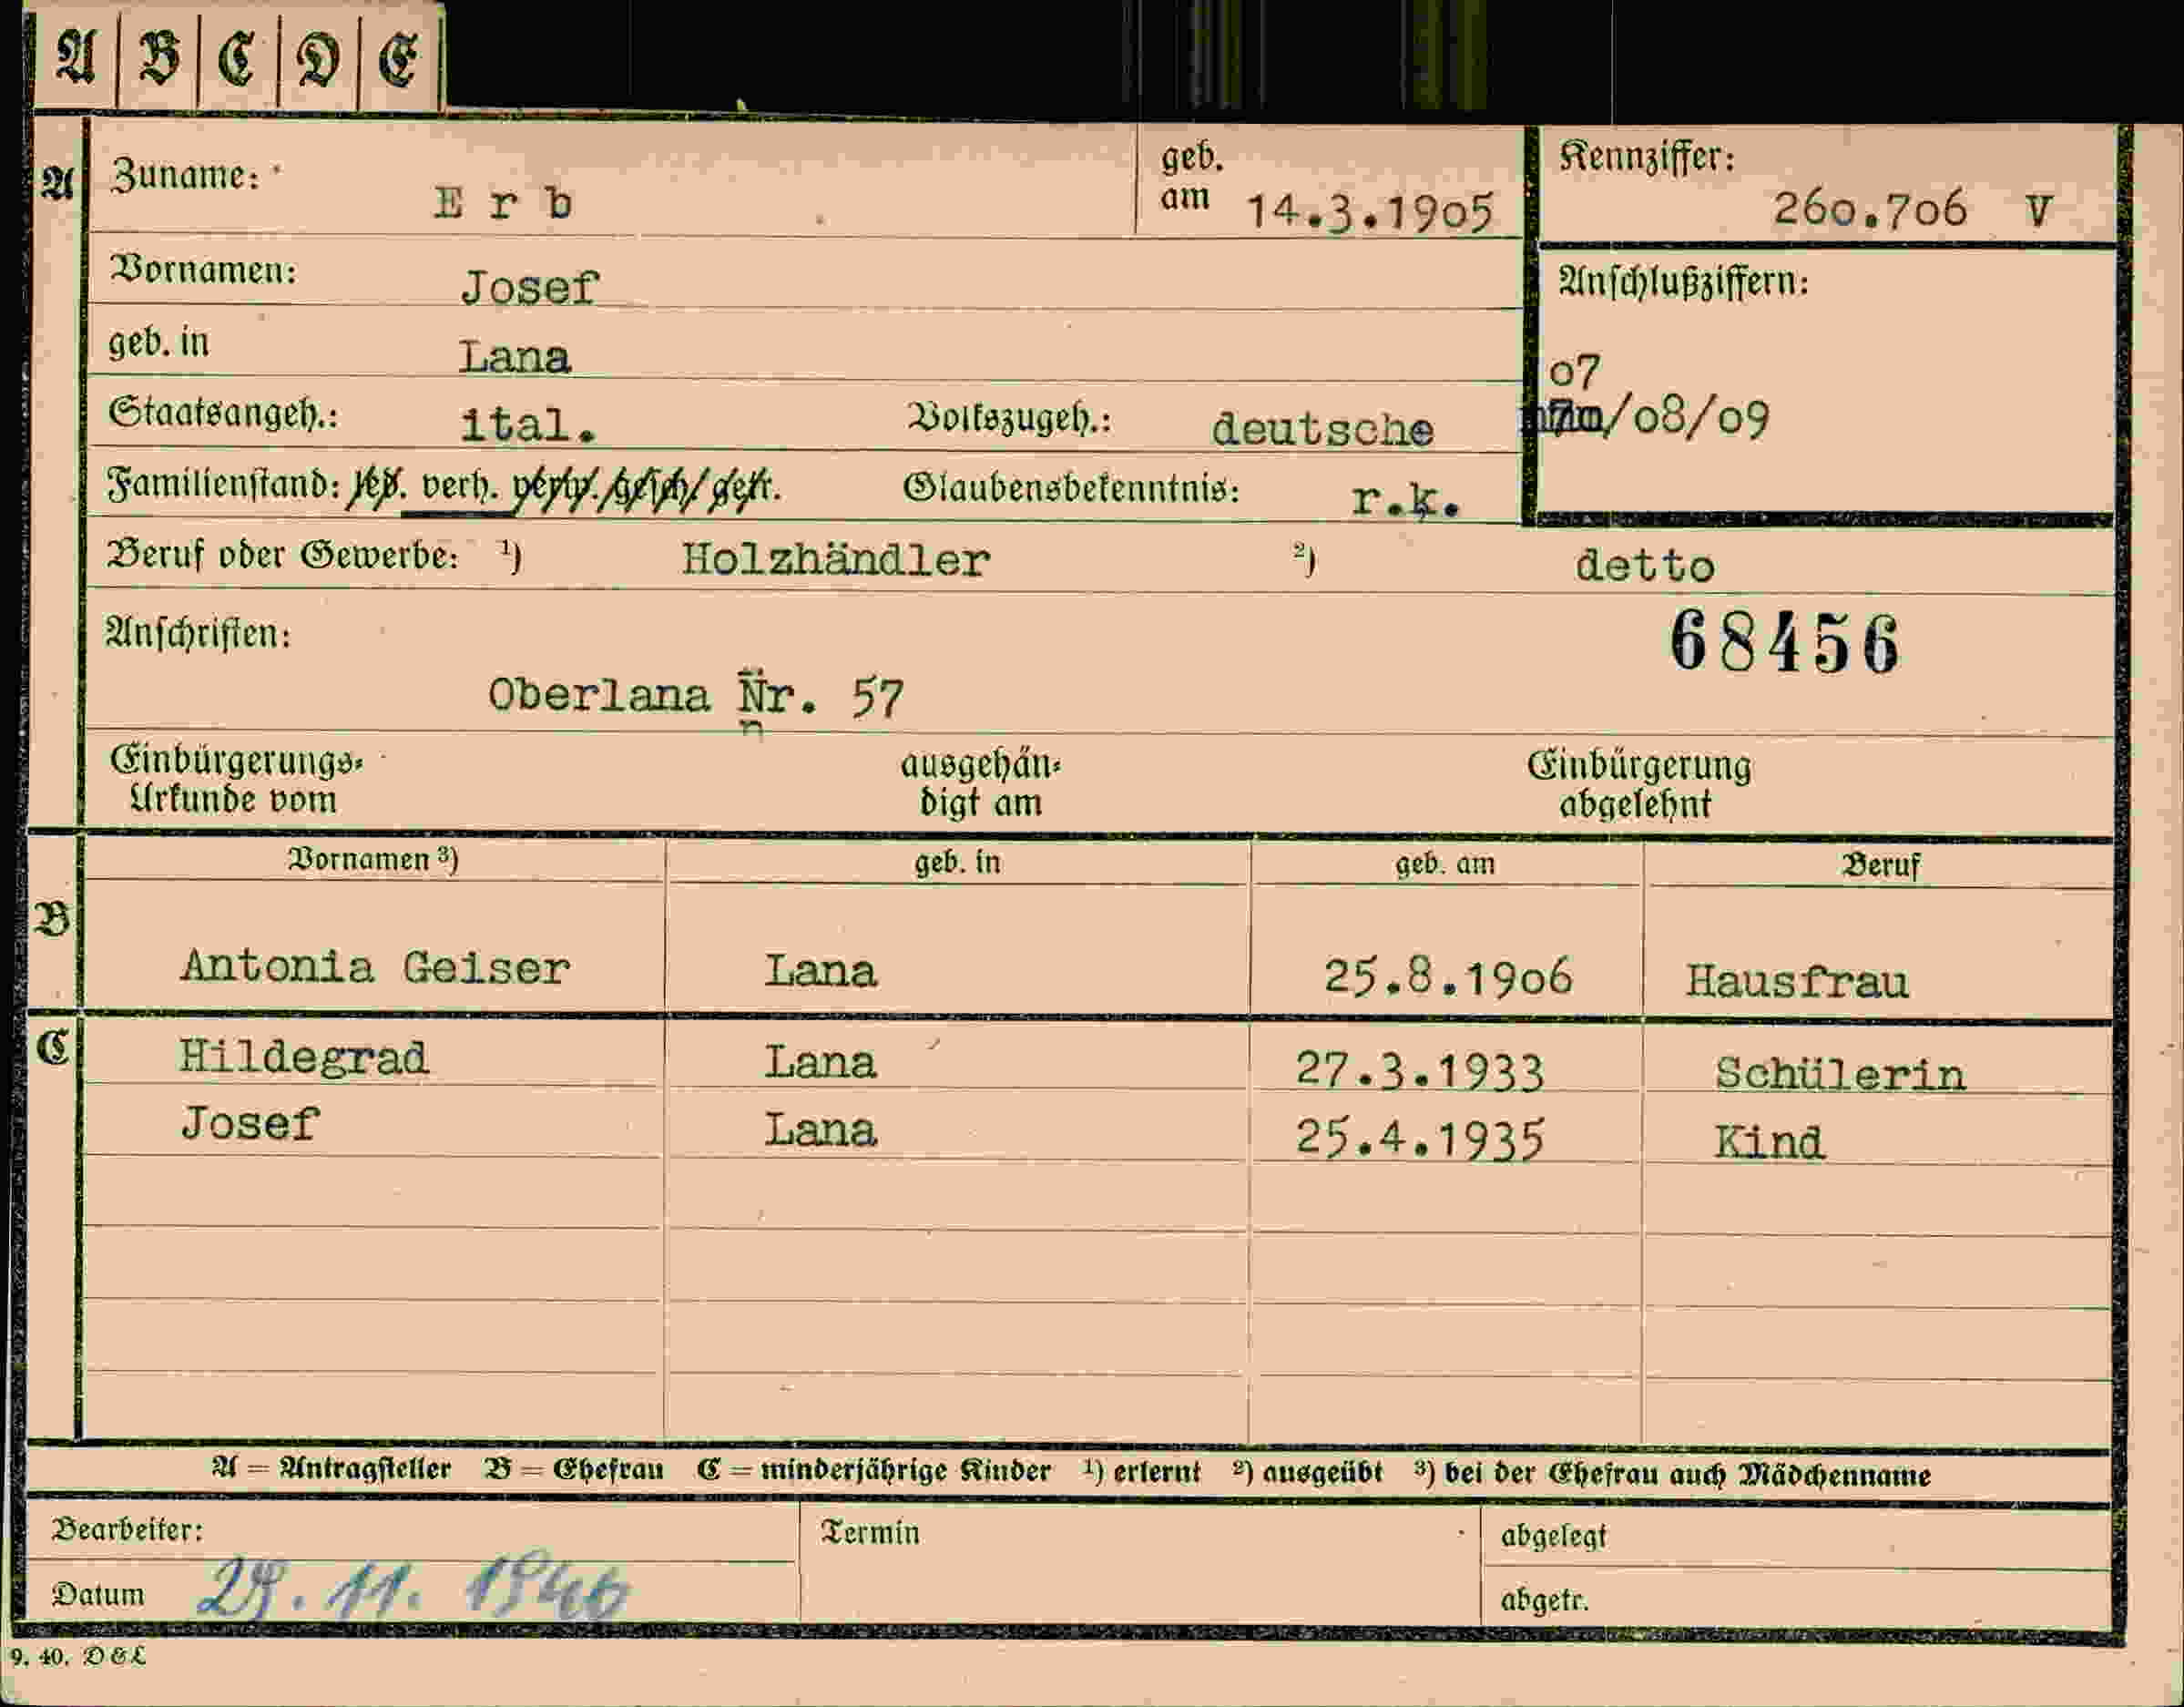 A B C D E
A Zuname: E r b geb. am 14.3.1905 Kennziffer: 260.706 V
Vornamen: Josef Anschlußziffern:
geb. in Lana 07
Staatsangeh.: ital. Volkszugeh.: deutsche /08/09
Familienstand: led. verh. verw. gesch. getr. Glaubensbekenntnis: r.k.
Beruf oder Gewerbe: ¹) Holzhändler ²) detto
Anschriften: 68456
Oberlana Nr. 57
Einbürgerungs- ausgehän- Einbürgerung
Urkunde vom digt am abgelehnt
Vornamen ³) geb. in geb. am Beruf
B
Antonia Geiser Lana 25.8.1906 Hausfrau
C Hildegrad Lana 27.3.1933 Schülerin
Josef Lana 25.4.1935 Kind
A = Antragsteller B = Ehefrau C = minderjährige Kinder ¹) erlernt ²) ausgeübt ³) bei der Ehefrau auch Mädchenname
Bearbeiter: Termin abgelegt
Datum 29. 11. 1940 abgetr.
9. 40. D&L